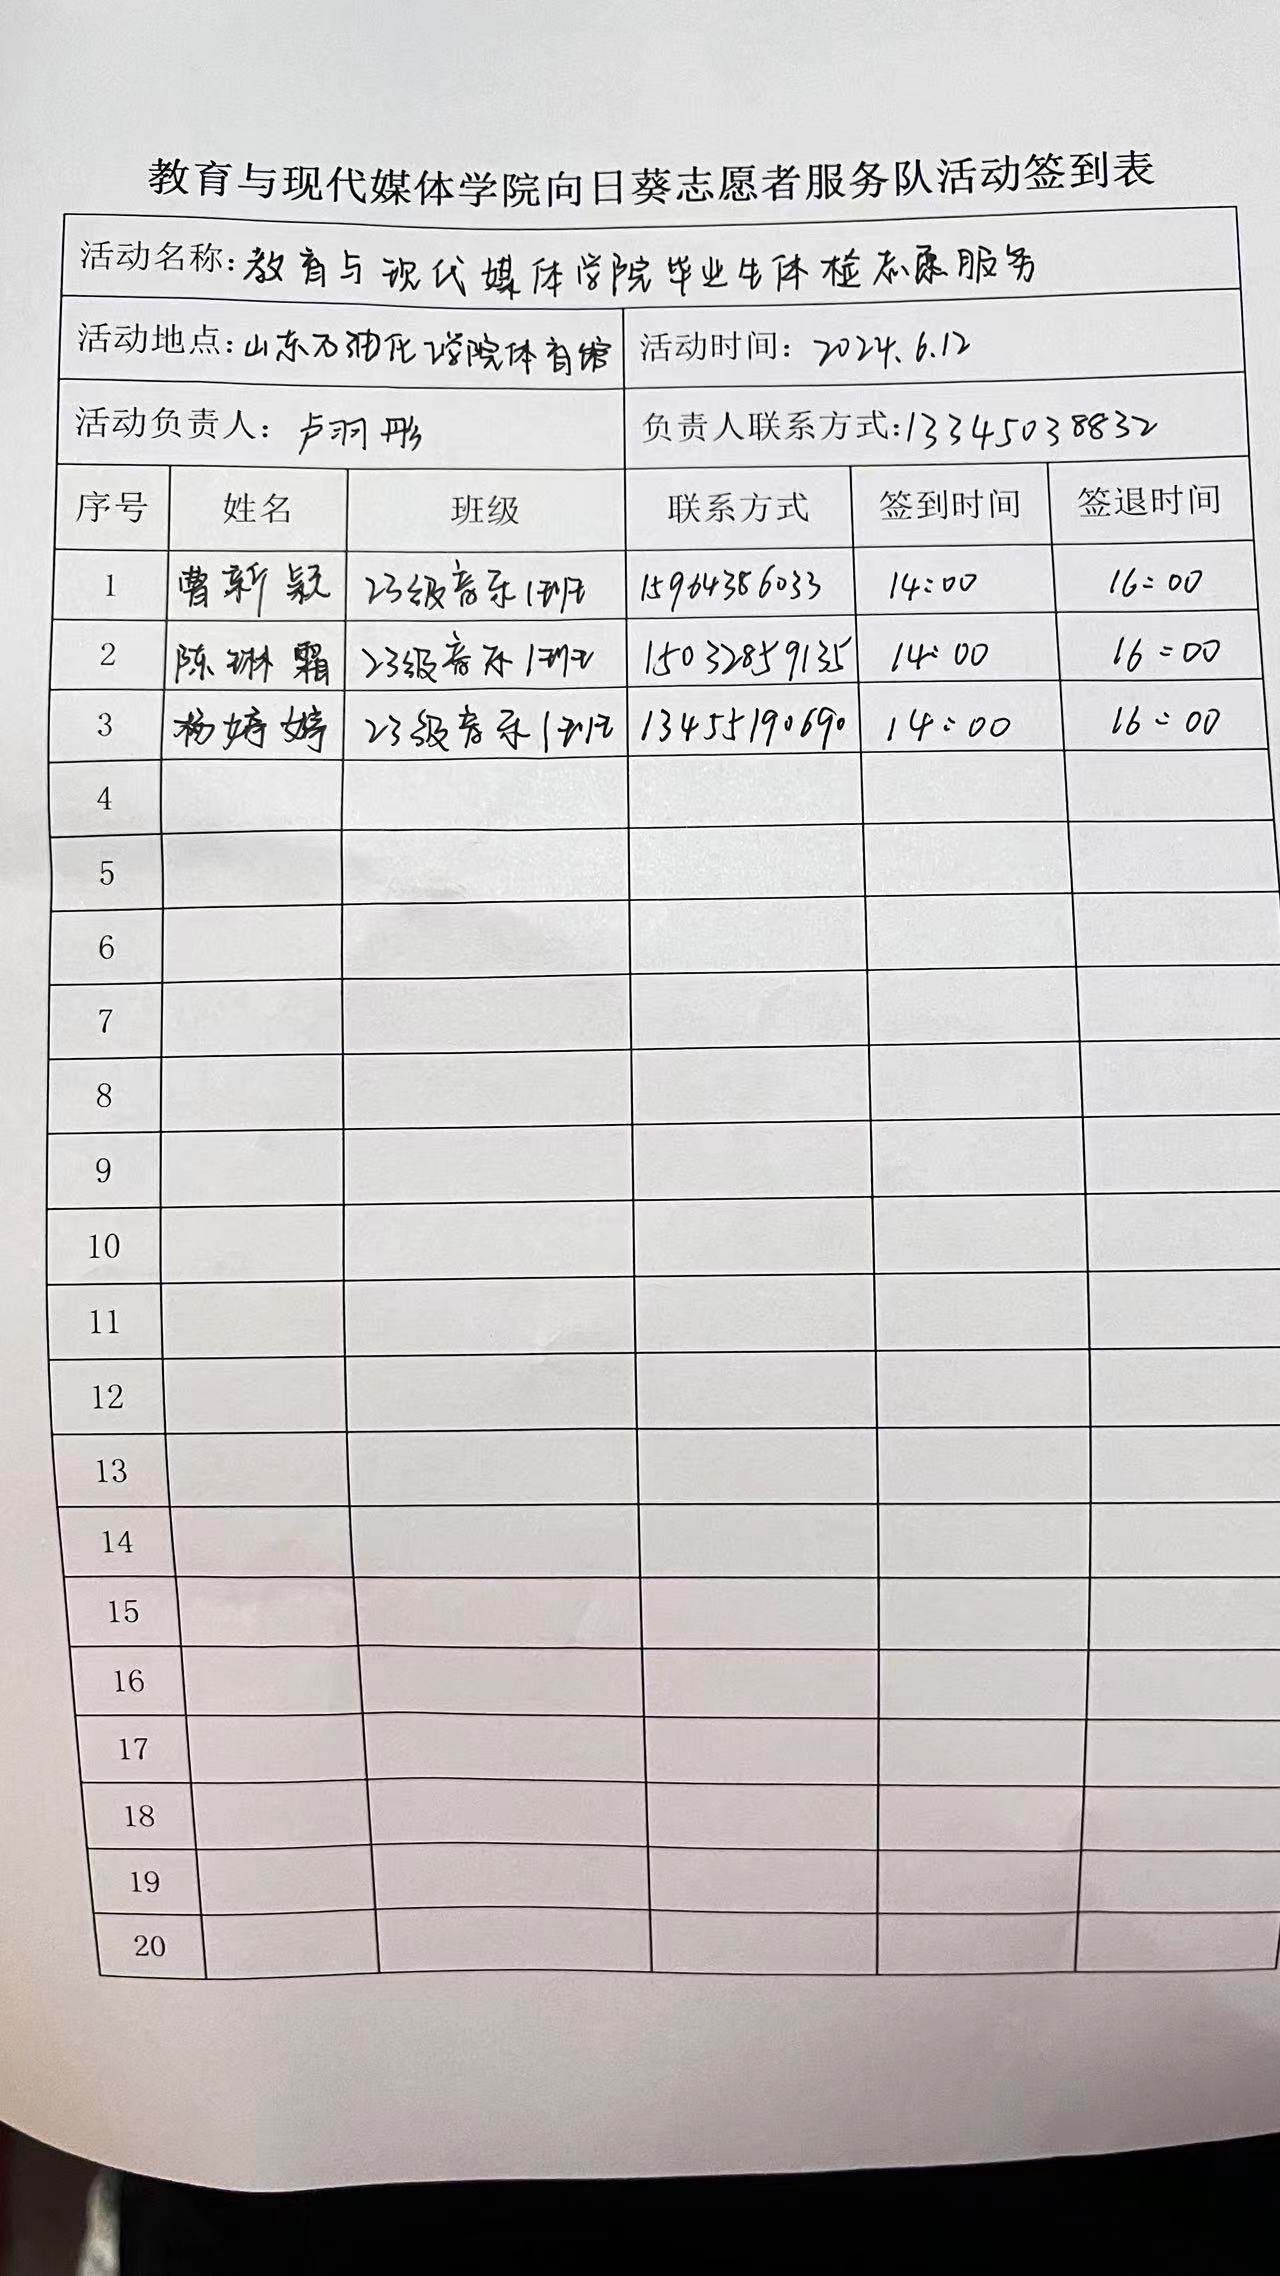 教育与现代媒体学院向日葵志愿者服务队活动签到表
活动名称:教育与现代媒体学院毕业生体检志愿服务
活动地点:山东石油化工学院体育馆 活动时间: 2024.6.12
活动负责人: 卢羽彤 负责人联系方式:13345038832
序号 姓名 班级 联系方式 签到时间 签退时间
1 曹新颖 23级音乐1班 15964386033 14:00 16:00
2 陈琳霜 23级音乐1班 15032859135 14:00 16:00
3 杨婷婷 23级音乐1班 13455190690 14:00 16:00
4
5
6
7
8
9
10
11
12
13
14
15
16
17
18
19
20